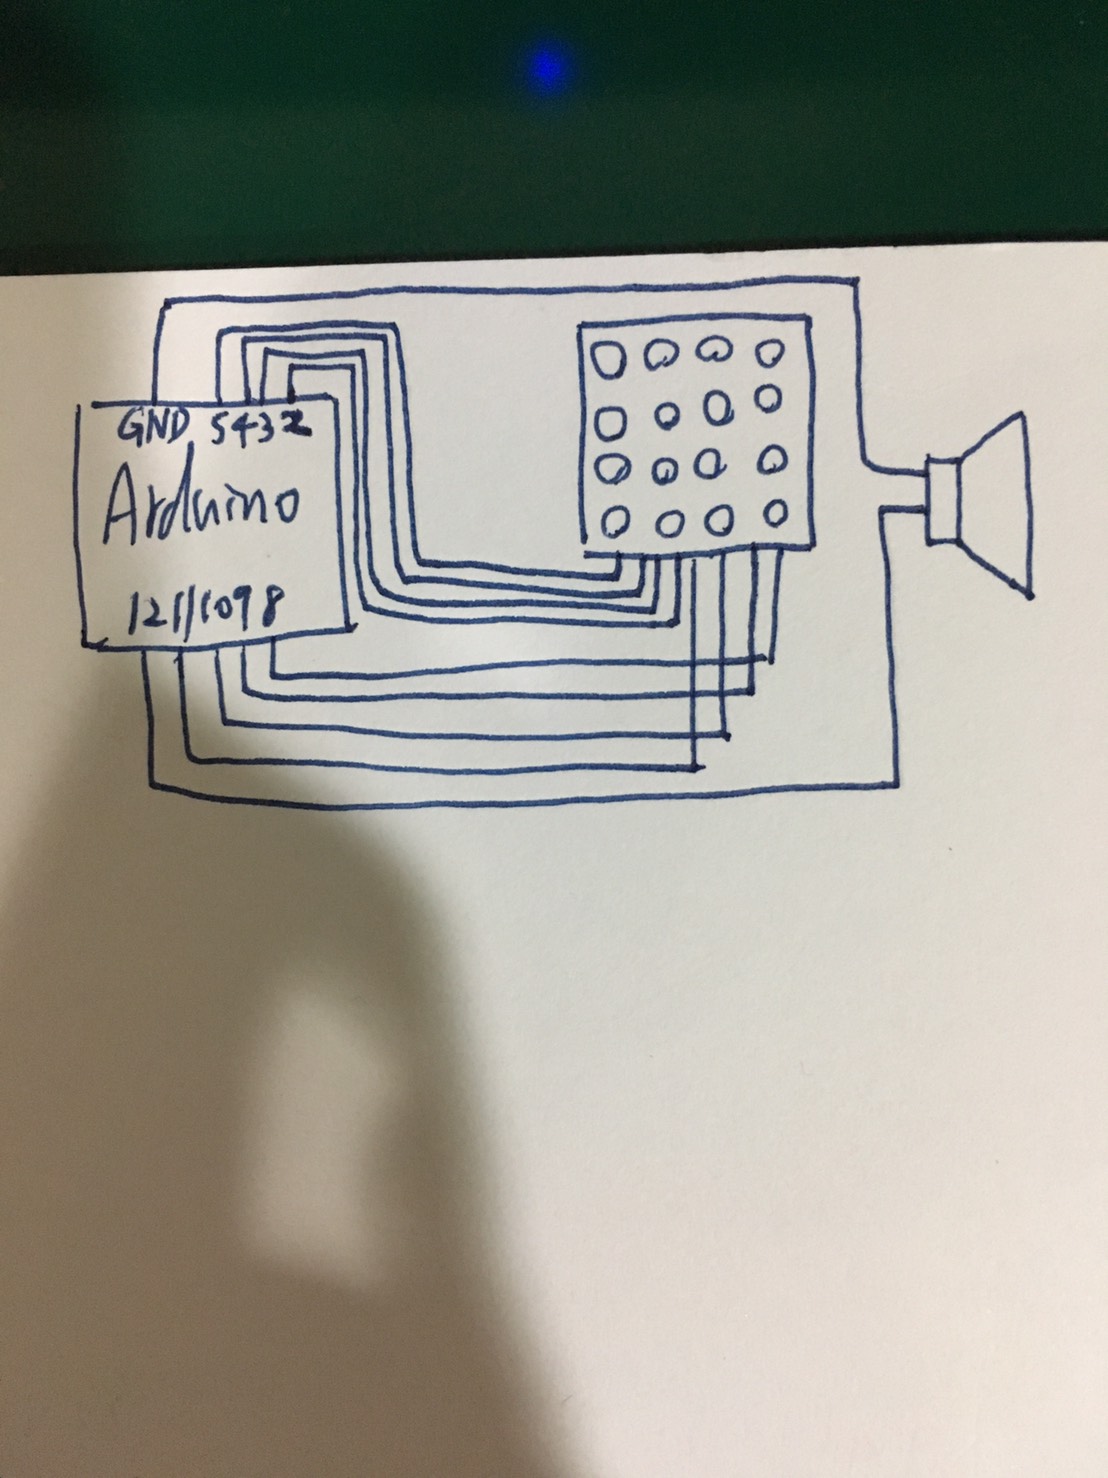 GND 5432
Arduino
12 11 10 9 8